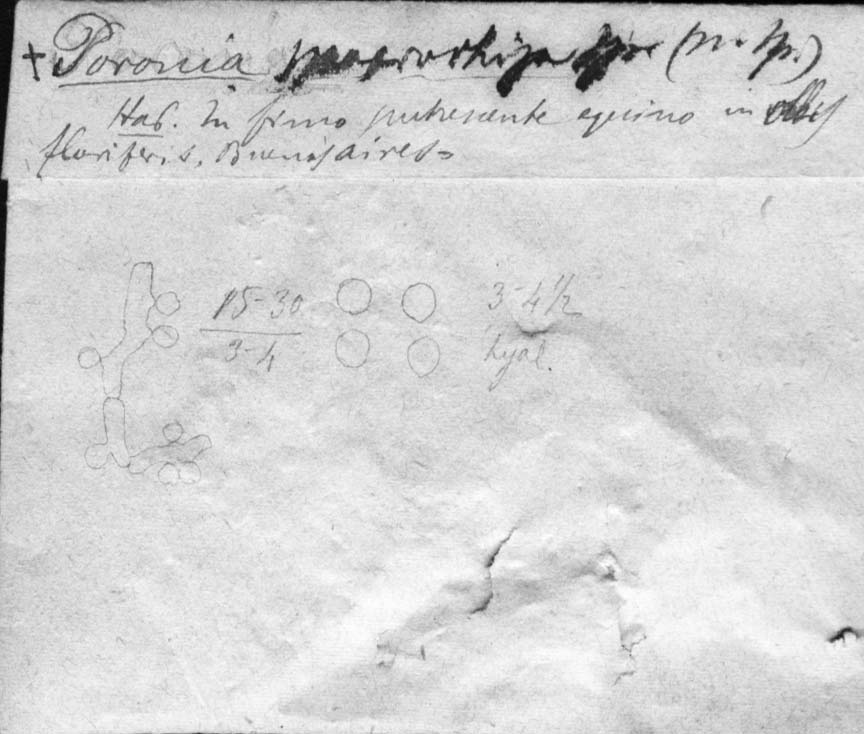 + Poronia macrorhiza (n. sp.)
Hab. In fimo putrescente equino in ollis
floriferis, Buenos aires=
15-30 3-4½
3-4 hyal.